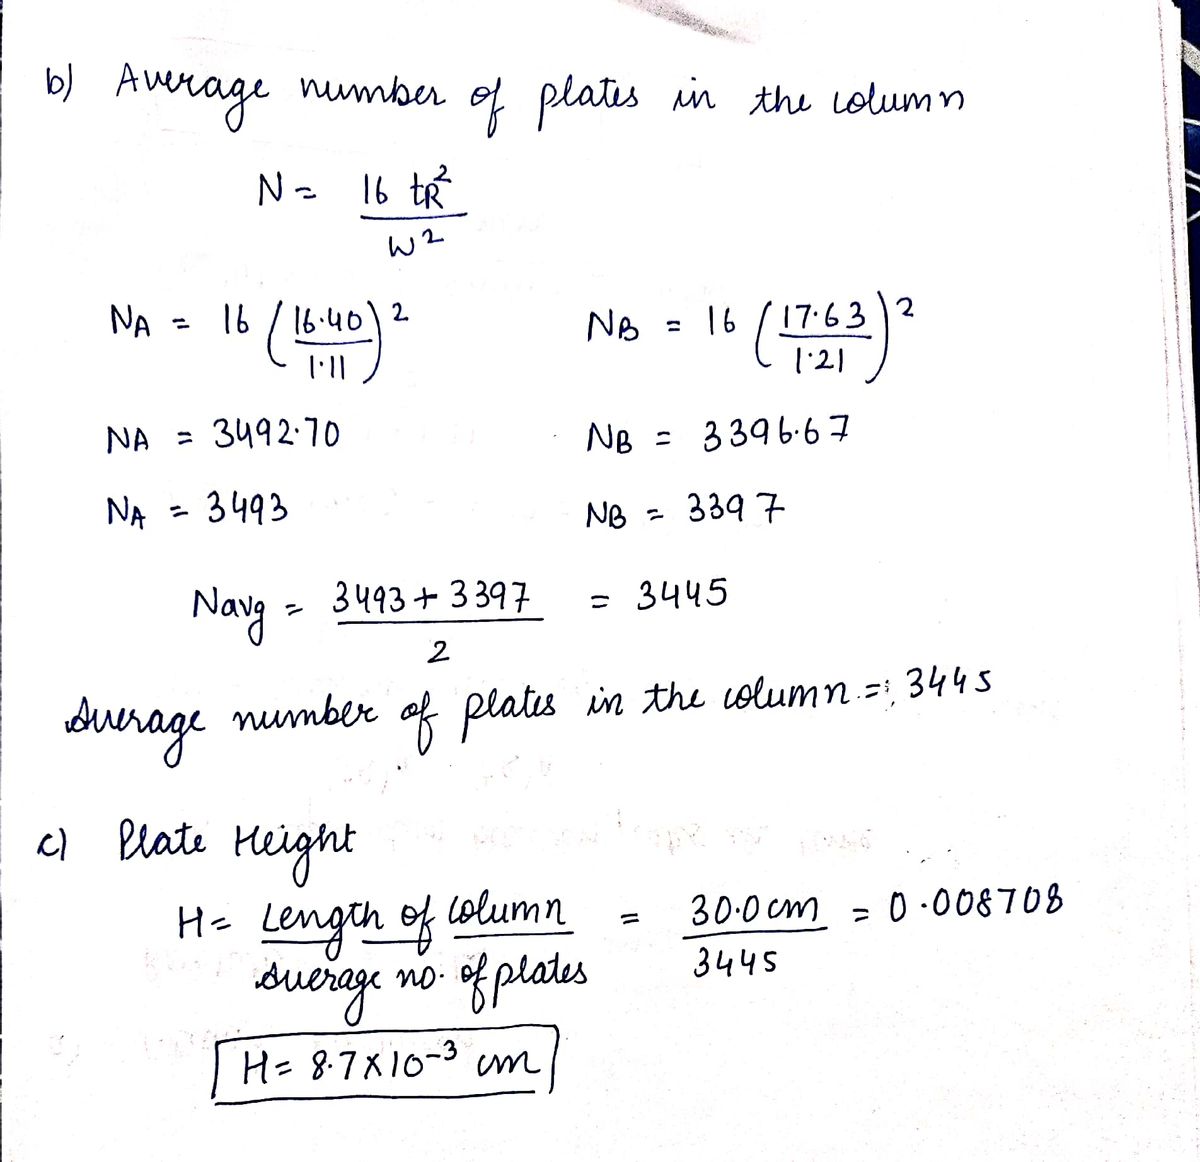 b) Average number of plates in the column
N = 16 tR²
W²
NA = 16 (16.40 / 1.11)²
NB = 16 (17.63 / 1.21)²
NA = 3492.70
NB = 3396.67
NA = 3493
NB = 3397
Navg = 3493 + 3397 = 3445
2
Average number of plates in the column = 3445
c) Plate Height
H = Length of column = 30.0 cm = 0.008708
Average no. of plates 3445
H = 8.7 X 10-3 cm